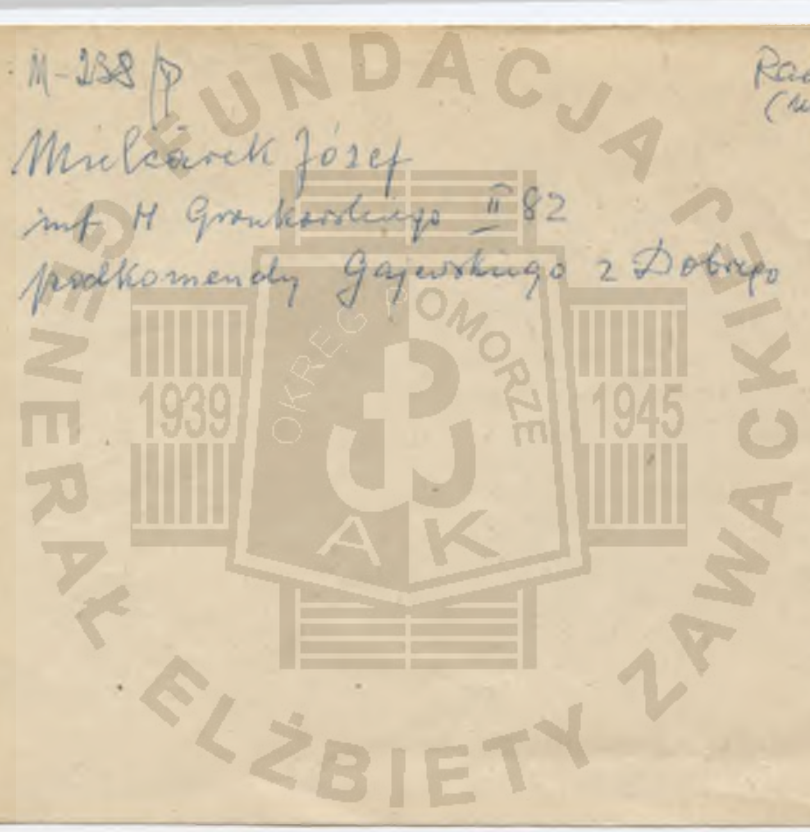 M-238/P
Rad
(M
Mielcarek Józef
inf H Gronkowskiego II 82
podkomendy Gajewskiego z Dobrego
FUNDACJA GENERAŁ ELŻBIETY ZAWACKIEJ
OKRĘG POMORZE
1939
1945
A K